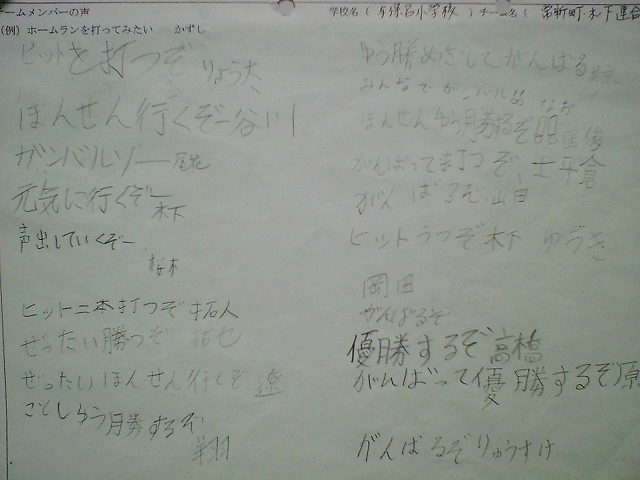 チームメンバーの声
学校名 ( 与保呂小学校 ) チーム名 ( 常新町・木下連合
(例) ホームランを打ってみたい かずし
ヒットを打つぞ りょう太
ほんせん行くぞー谷川
ガンバルゾー
元気に行くぞー 木下
声出していくぞー
桜木
ヒット二本打つぞ 拓人
ぜったい勝つぞ 拓也
ぜったいほんせん行くぞ 遼
ことしゆう勝するぞ
翔
ゆう勝めざしてがんばる
みんなでガンバルぬ なお
ほんせんゆう勝するぞ 匡俊
がんばって打つぞ 士平倉
がんばるぞ 山田
ヒットうつぞ 木下 ゆうき
岡田
がんばるぞ
優勝するぞ 高橋
がんばって優勝するぞ 原
がんばるぞ りゅうすけ